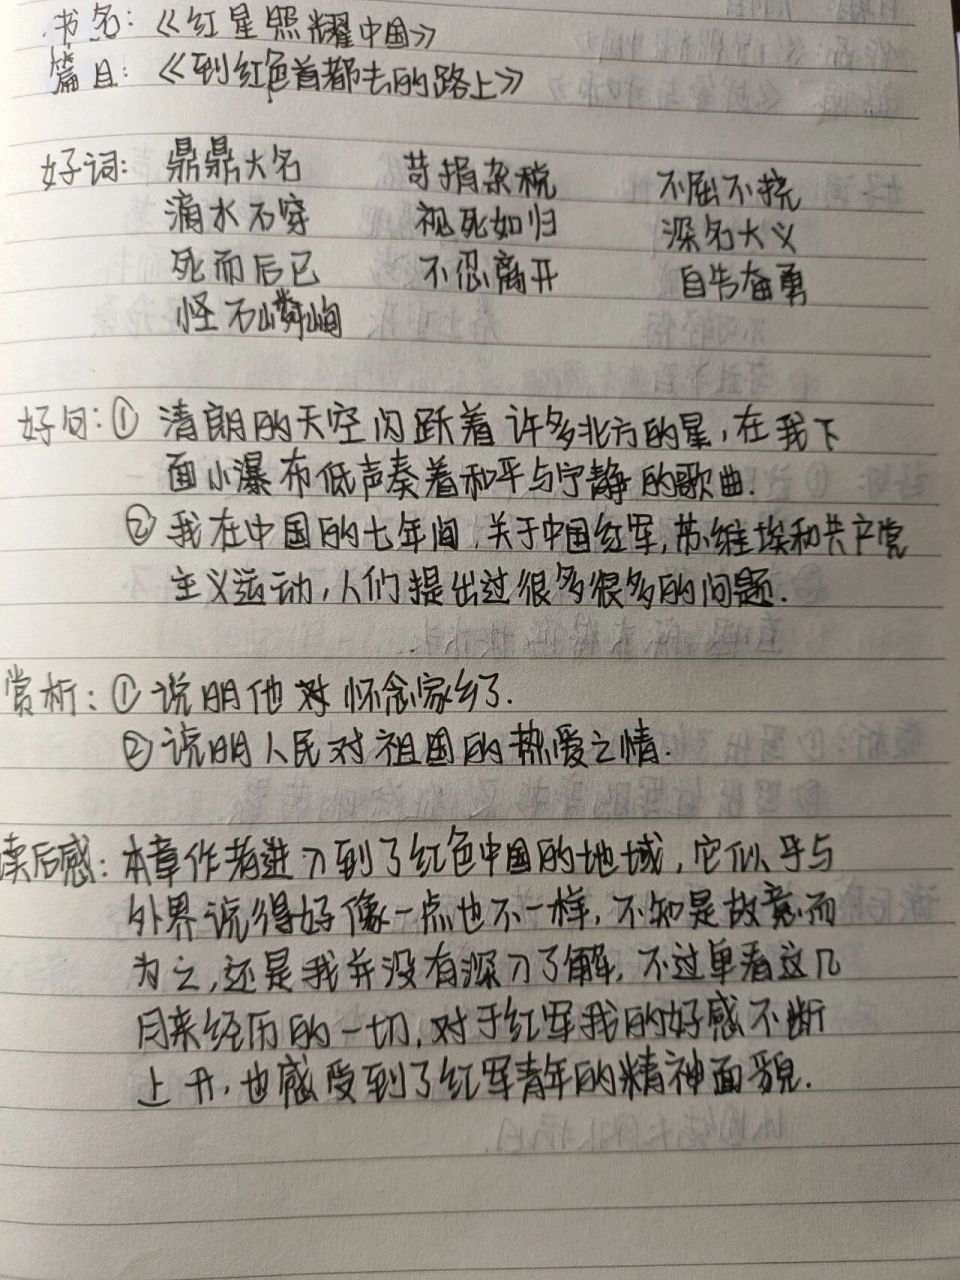 书名：《红星照耀中国》
篇目：《到红色首都去的路上》
好词：鼎鼎大名 苛捐杂税 不屈不挠
滴水石穿 视死如归 深名大义
死而后已 不忍离开 自告奋勇
怪石嶙峋
好句：① 清朗的天空闪跃着许多北方的星，在我下
面小瀑布低声奏着和平与宁静的歌曲.
② 我在中国的七年间，关于中国红军，苏维埃和共产党
主义运动，人们提出过很多很多的问题.
赏析：① 说明他对怀念家乡了.
② 说明人民对祖国的热爱之情.
读后感：本章作者进入到了红色中国的地域，它似乎与
外界说得好像一点也不一样，不知是故意而
为之，还是我并没有深入了解，不过单看这几
月来经历的一切，对于红军我的好感不断
上升，也感受到了红军青年的精神面貌.